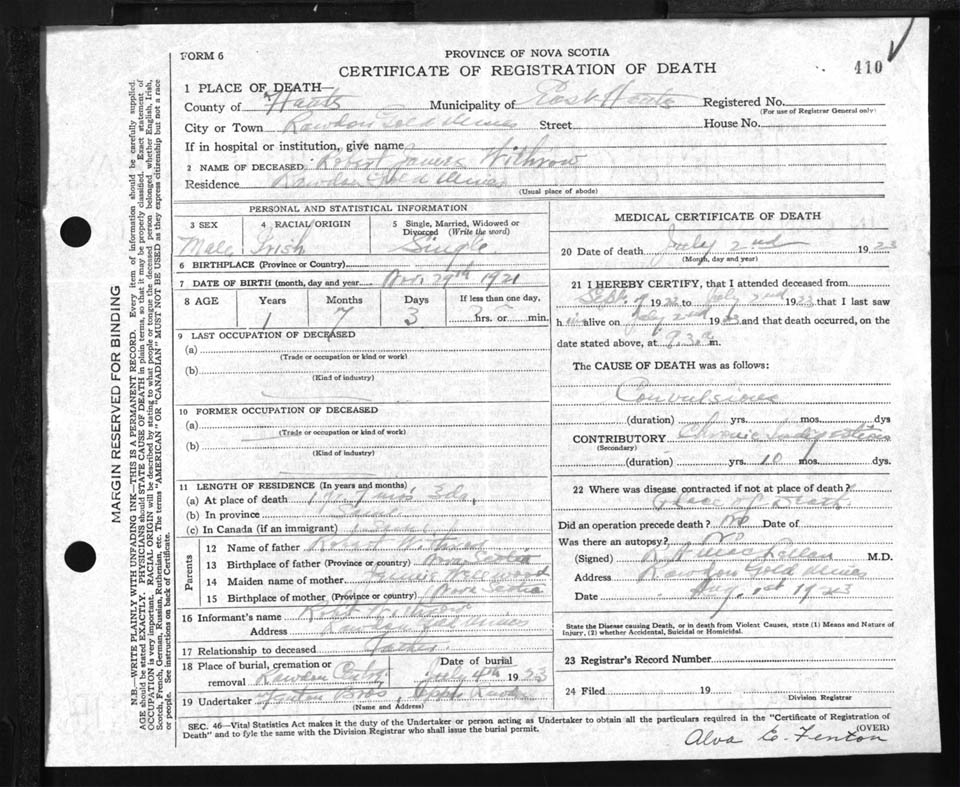 FORM 6
PROVINCE OF NOVA SCOTIA
CERTIFICATE OF REGISTRATION OF DEATH
410
1 PLACE OF DEATH—
County of Hants Municipality of East Hants Registered No.
(For use of Registrar General only)
City or Town Rawdon Gold Mines Street House No.
If in hospital or institution, give name
2 NAME OF DECEASED Robert James Withrow
Residence Rawdon Gold Mines
(Usual place of abode)
PERSONAL AND STATISTICAL INFORMATION
3 SEX 4 RACIAL ORIGIN 5 Single, Married, Widowed or Divorced (Write the word)
Male Irish Single
6 BIRTHPLACE (Province or Country)
7 DATE OF BIRTH (month, day and year) Nov. 29th 1921
8 AGE Years Months Days If less than one day,
1 7 3 hrs. or min.
9 LAST OCCUPATION OF DECEASED
(a)
(Trade or occupation or kind or work)
(b)
(Kind of industry)
10 FORMER OCCUPATION OF DECEASED
(a)
(Trade or occupation or kind or work)
(b)
(Kind of industry)
11 LENGTH OF RESIDENCE (In years and months)
(a) At place of death 1 yr. 7 mos 3 ds.
(b) In province
(c) In Canada (if an immigrant)
Parents
12 Name of father Robert Withrow
13 Birthplace of father (Province or country) Nova Scotia
14 Maiden name of mother Wellwood
15 Birthplace of mother (Province or country) Nova Scotia
16 Informant's name Robt Withrow
Address Rawdon Gold Mines
17 Relationship to deceased Father
18 Place of burial, cremation or removal Rawdon Date of burial July 4th 1923
19 Undertaker Fenton Bros Upper Rawdon
(Name and Address)
MEDICAL CERTIFICATE OF DEATH
20 Date of death July 2nd 1923
(Month, day and year)
21 I HEREBY CERTIFY, that I attended deceased from
Sept. 1922 to July 2nd 1923, that I last saw
h im alive on July 2nd 1923 and that death occurred, on the
date stated above, at m.
The CAUSE OF DEATH was as follows:
Convulsions
(duration) yrs. mos. dys
CONTRIBUTORY Chronic Indigestion
(Secondary)
(duration) yrs. 10 mos. dys.
22 Where was disease contracted if not at place of death?
Place of Death
Did an operation precede death? no Date of
Was there an autopsy? No
(Signed) MacLellan M.D.
Address Rawdon Gold Mines
Date Aug. 1st 1923
State the Disease causing Death, or in death from Violent Causes, state (1) Means and Nature of
Injury, (2) whether Accidental, Suicidal or Homicidal.
23 Registrar's Record Number
24 Filed 19
Division Registrar
SEC. 46—Vital Statistics Act makes it the duty of the Undertaker or person acting as Undertaker to obtain all the particulars required in the "Certificate of Registration of
Death" and to fyle the same with the Division Registrar who shall issue the burial permit.
(OVER)
Alva E. Fenton
MARGIN RESERVED FOR BINDING
N.B.—WRITE PLAINLY WITH UNFADING INK—THIS IS A PERMANENT RECORD. Every item of information should be carefully supplied.
AGE should be stated EXACTLY. PHYSICIANS should STATE CAUSE OF DEATH in plain terms, so that it may be properly classified. Exact statement of
OCCUPATION is very important. RACIAL ORIGIN will be described by stating to what people or tongue the deceased person belonged whether English, Irish,
Scotch, French, German, Russian, Ruthenian, etc. The terms "AMERICAN" OR "CANADIAN" MUST NOT BE USED as they express citizenship but not a race
or people. See instructions on back of Certificate.